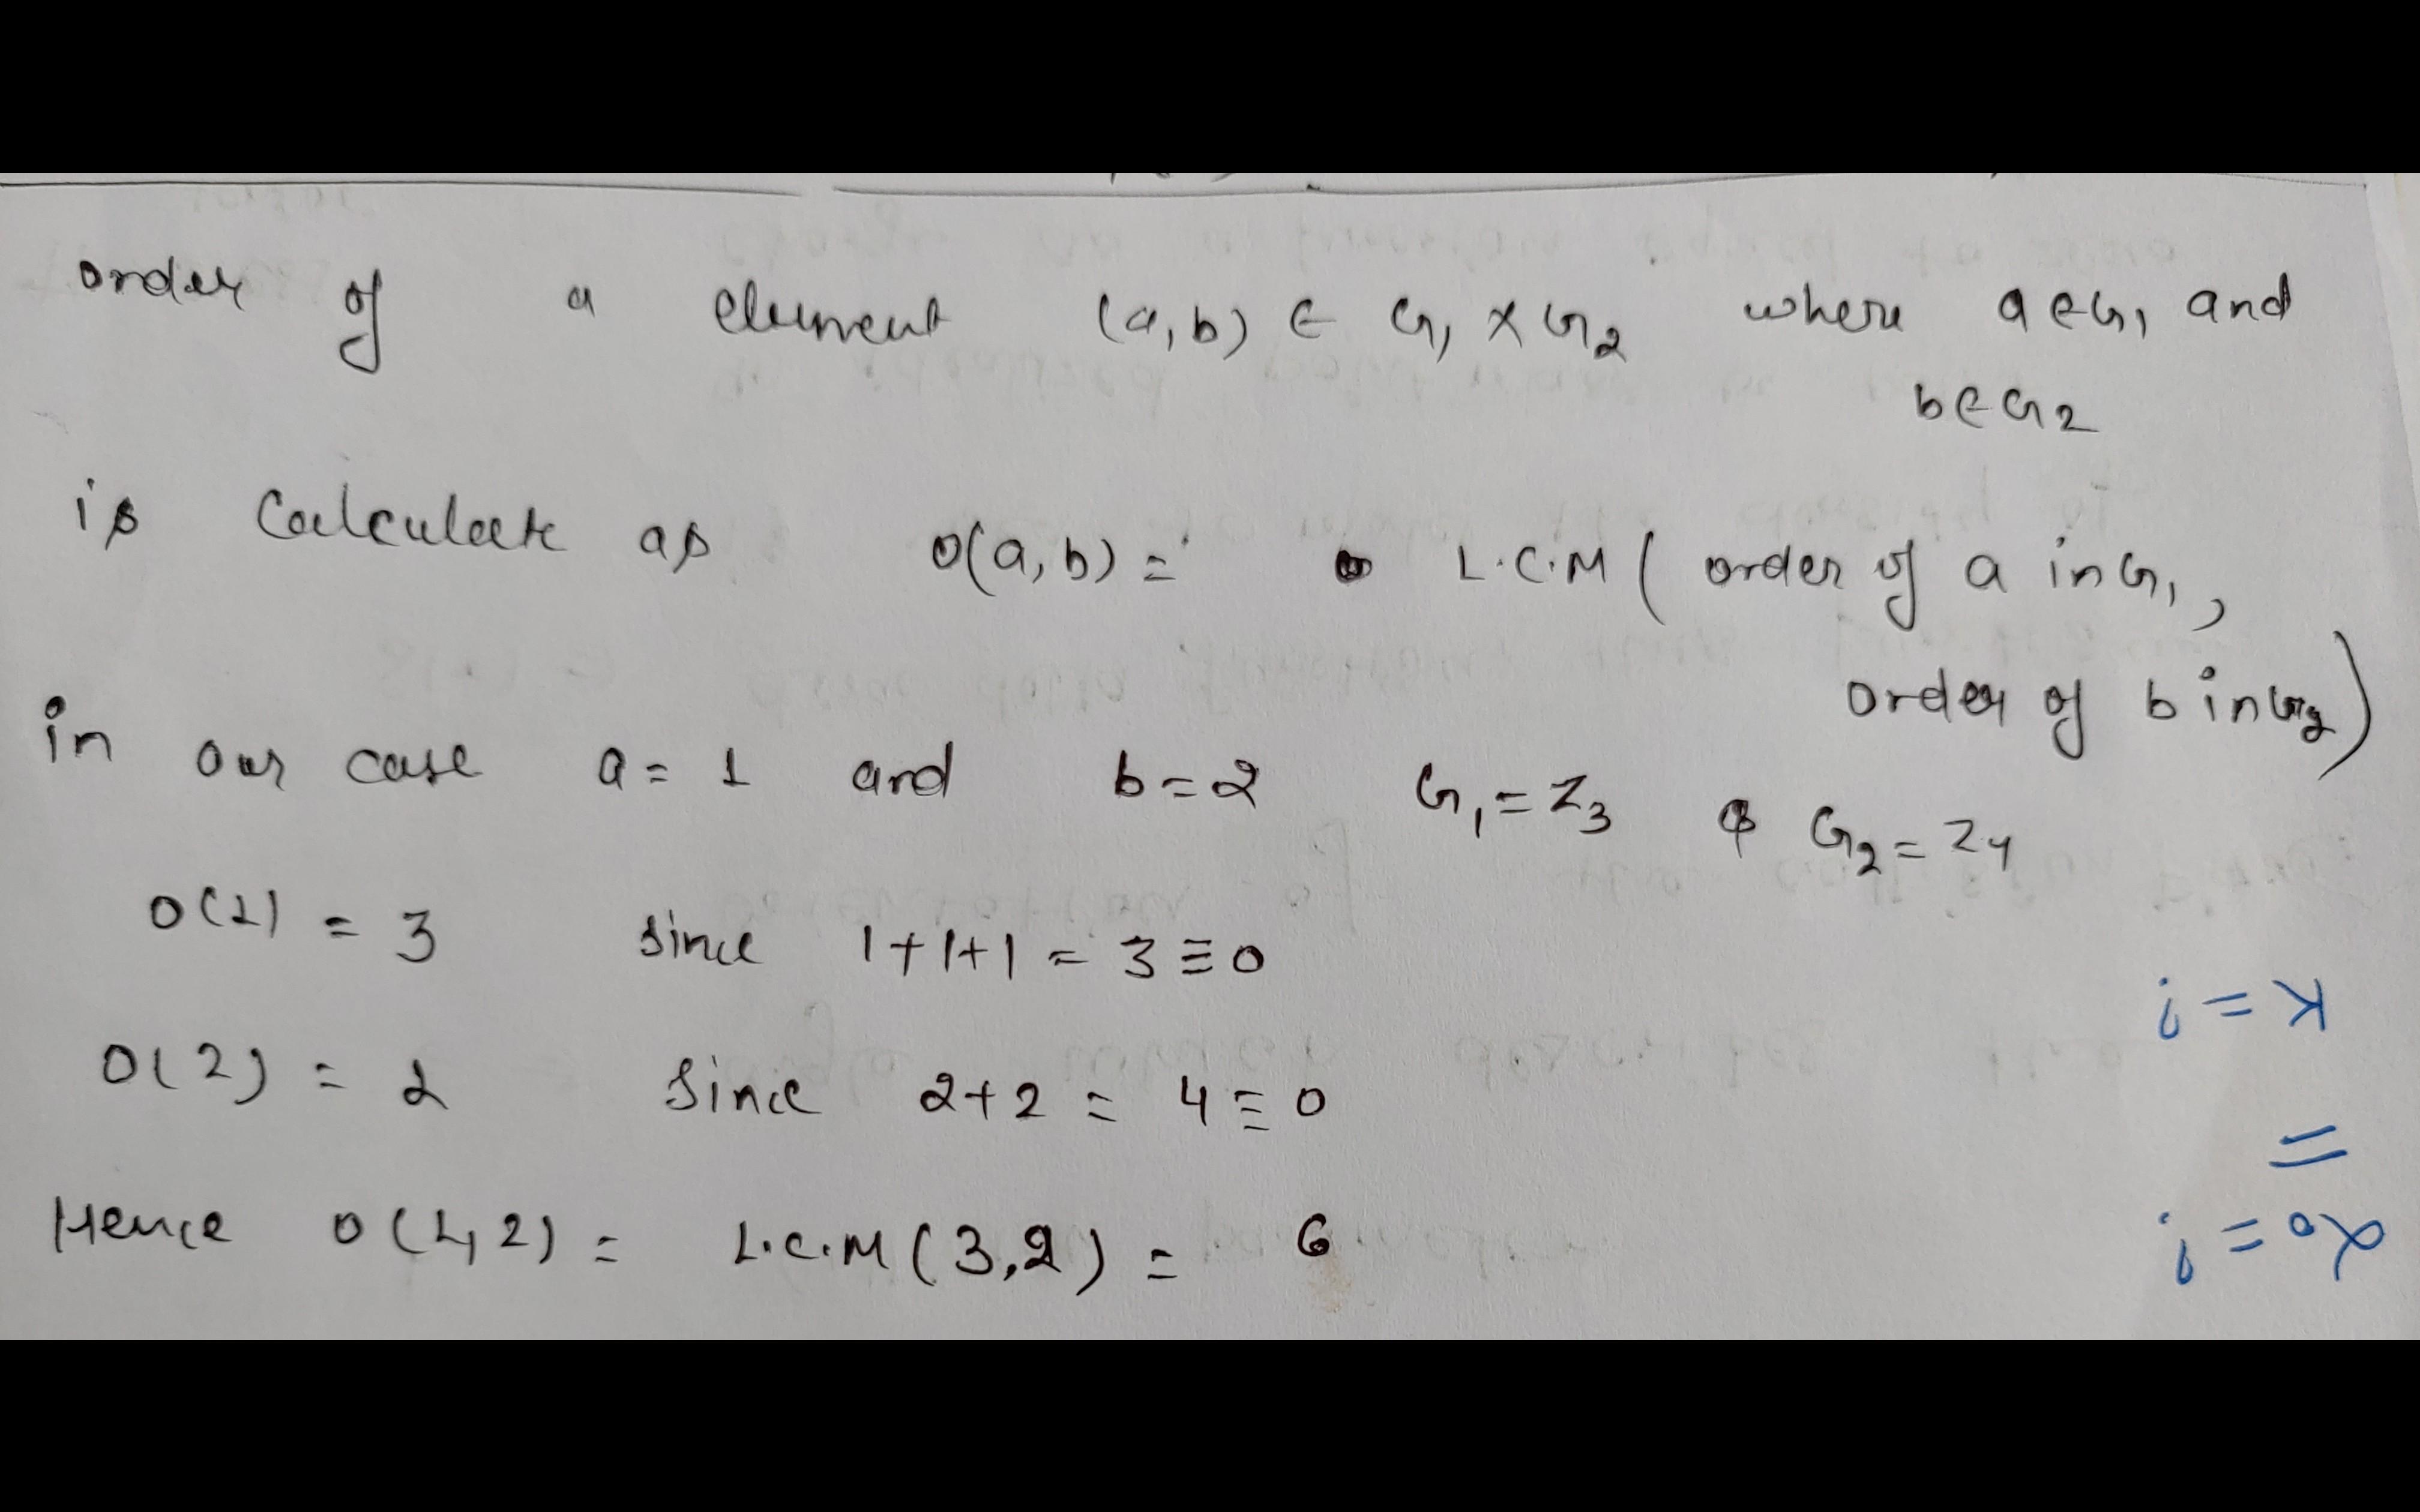 order of a element (a,b) ∈ G₁ × G₂ where a∈G₁ and
b∈G₂
is Calculate as o(a,b) = L.C.M ( order of a in G₁,
order of b in G₂)
in our case a = 1 and b = 2 G₁ = Z₃ & G₂ = Z₄
O(1) = 3 since 1+1+1 = 3 ≡ 0
O(2) = 2 Since 2+2 = 4 ≡ 0
Hence o(1,2) = L.C.M (3,2) = 6